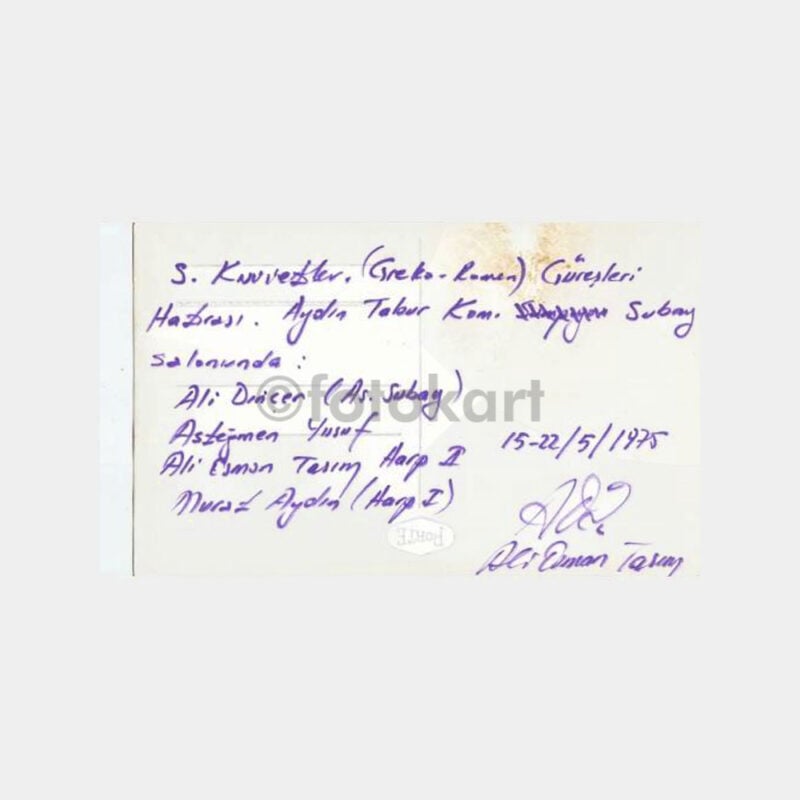 S. Kuvvetler. (Greko-Romen) Güreşleri
Hatırası. Aydın Tabur Kom. Subay
salonunda :
Ali Dinçer (As. Subay)
Asteğmen Yusuf
Ali Osman Tasım Harp II
Murat Aydın (Harp I)
15-22/5/1975
Ali Osman Tasım
©fotokart
FORTE